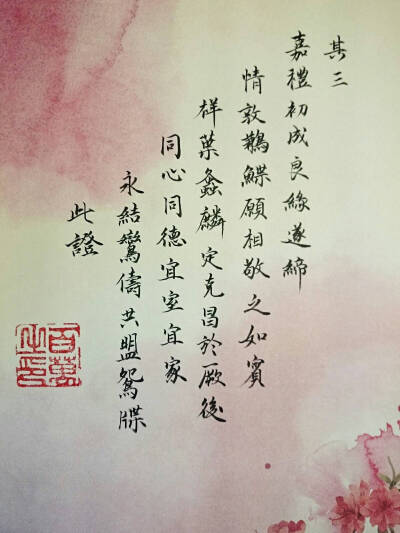 其三
嘉禮初成良緣遂締
情敦鶼鰈願相敬之如賓
祥葉螽麟定克昌於厥後
同心同德宜室宜家
永結鸞儔共盟鴛牒
此證
百萬之印